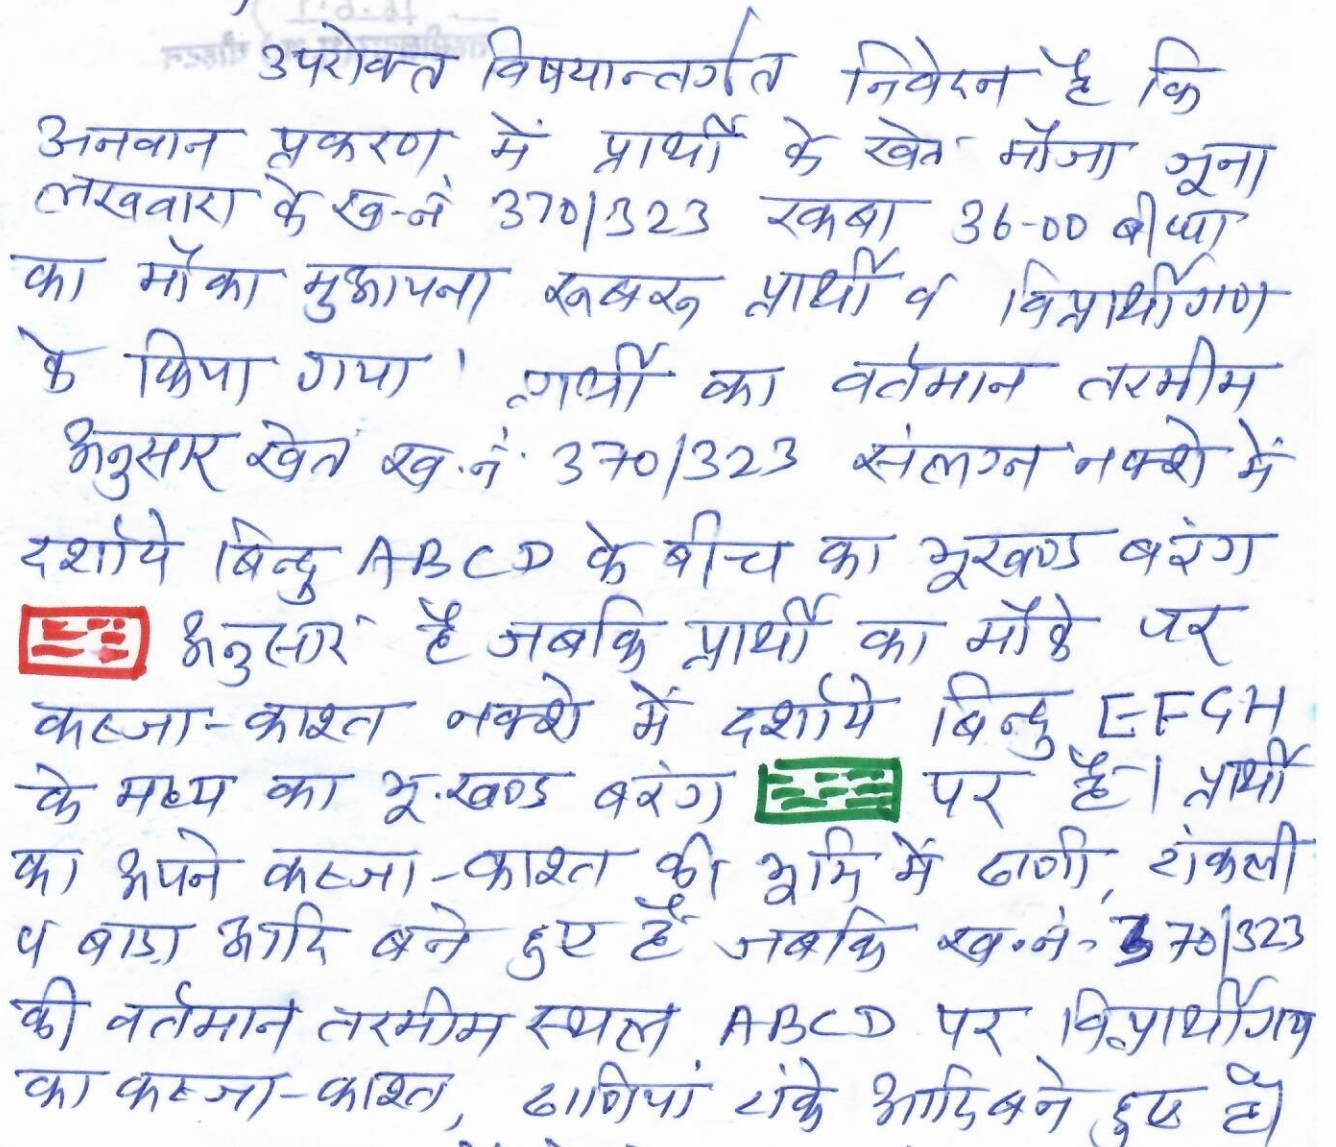 उपरोक्त विषयान्तर्गत निवेदन है कि
अनवान प्रकरण में प्रार्थी के खेत मौजा जूना
लखवारा के ख.नं 370/323 रकबा 36-00 बीघा
का मौका मुआयना रूबरू प्रार्थी व विप्रार्थीगण
के किया गया। प्रार्थी का वर्तमान तरमीम
अनुसार खेत ख.नं. 370/323 संलग्न नक्शे में
दर्शाये बिन्दु ABCD के बीच का भूखण्ड बरंग
अनुसार है जबकि प्रार्थी का मौके पर
कब्जा-काश्त नक्शे में दर्शाये बिन्दु EFGH
के मध्य का भू.खण्ड बरंग पर है। प्रार्थी
का अपने कब्जा-काश्त की भूमि में ढाणी, टांकली
व बाडा आदि बने हुए हैं जबकि ख.नं. 370/323
की वर्तमान तरमीम स्थल ABCD पर विप्रार्थीगण
का कब्जा-काश्त, ढाणियां टांके आदि बने हुए है।